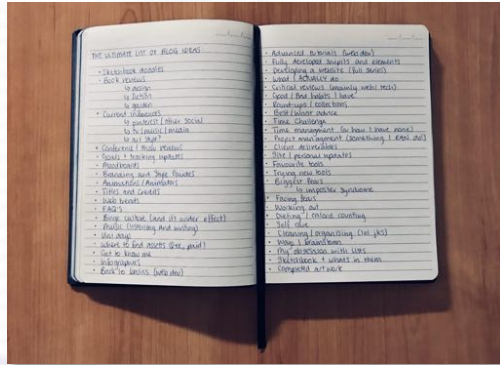 THE ULTIMATE LIST OF BLOG IDEAS
• Sketchbook doodles
• Book reviews
↳ design
↳ fiction
↳ garden
• Current influences
↳ pinterest / other social
↳ tv / music / media
↳ art style?
• Conference / talk reviews
• Goals + tracking updates
• Moodboards
• Branding and Style Guides
• Animations / Animators
• Titles and Credits
• Web trends
• FAQ's
• Binge culture (and its effect)
• Music (listening and writing)
• Uni days
• Where to find assets (free, paid)
• Get to know me
• Infographics
• Back to basics (web dev)
• Advanced tutorials (web dev)
• Fully developed snippets and elements
• Developing a website (full series)
• What I ACTUALLY do
• Critical reviews (mainly web / tech)
• Good / Bad habits I have
• Round-ups / collections
• Best / Worst advice
• Time Challenge
• Time management (or how I have none)
• Project management (something I can do)
• Client deliverables
• Site / personal updates
• Favourite tools
• Trying new tools
• Biggest fears
↳ imposter syndrome
• Facing fears
• Working out
• Dieting / calorie counting
• Self care
• Cleaning / organising
• Ways I brainstorm
• My obsession with lists
• Sketchbook + what's in them
• Completed artwork